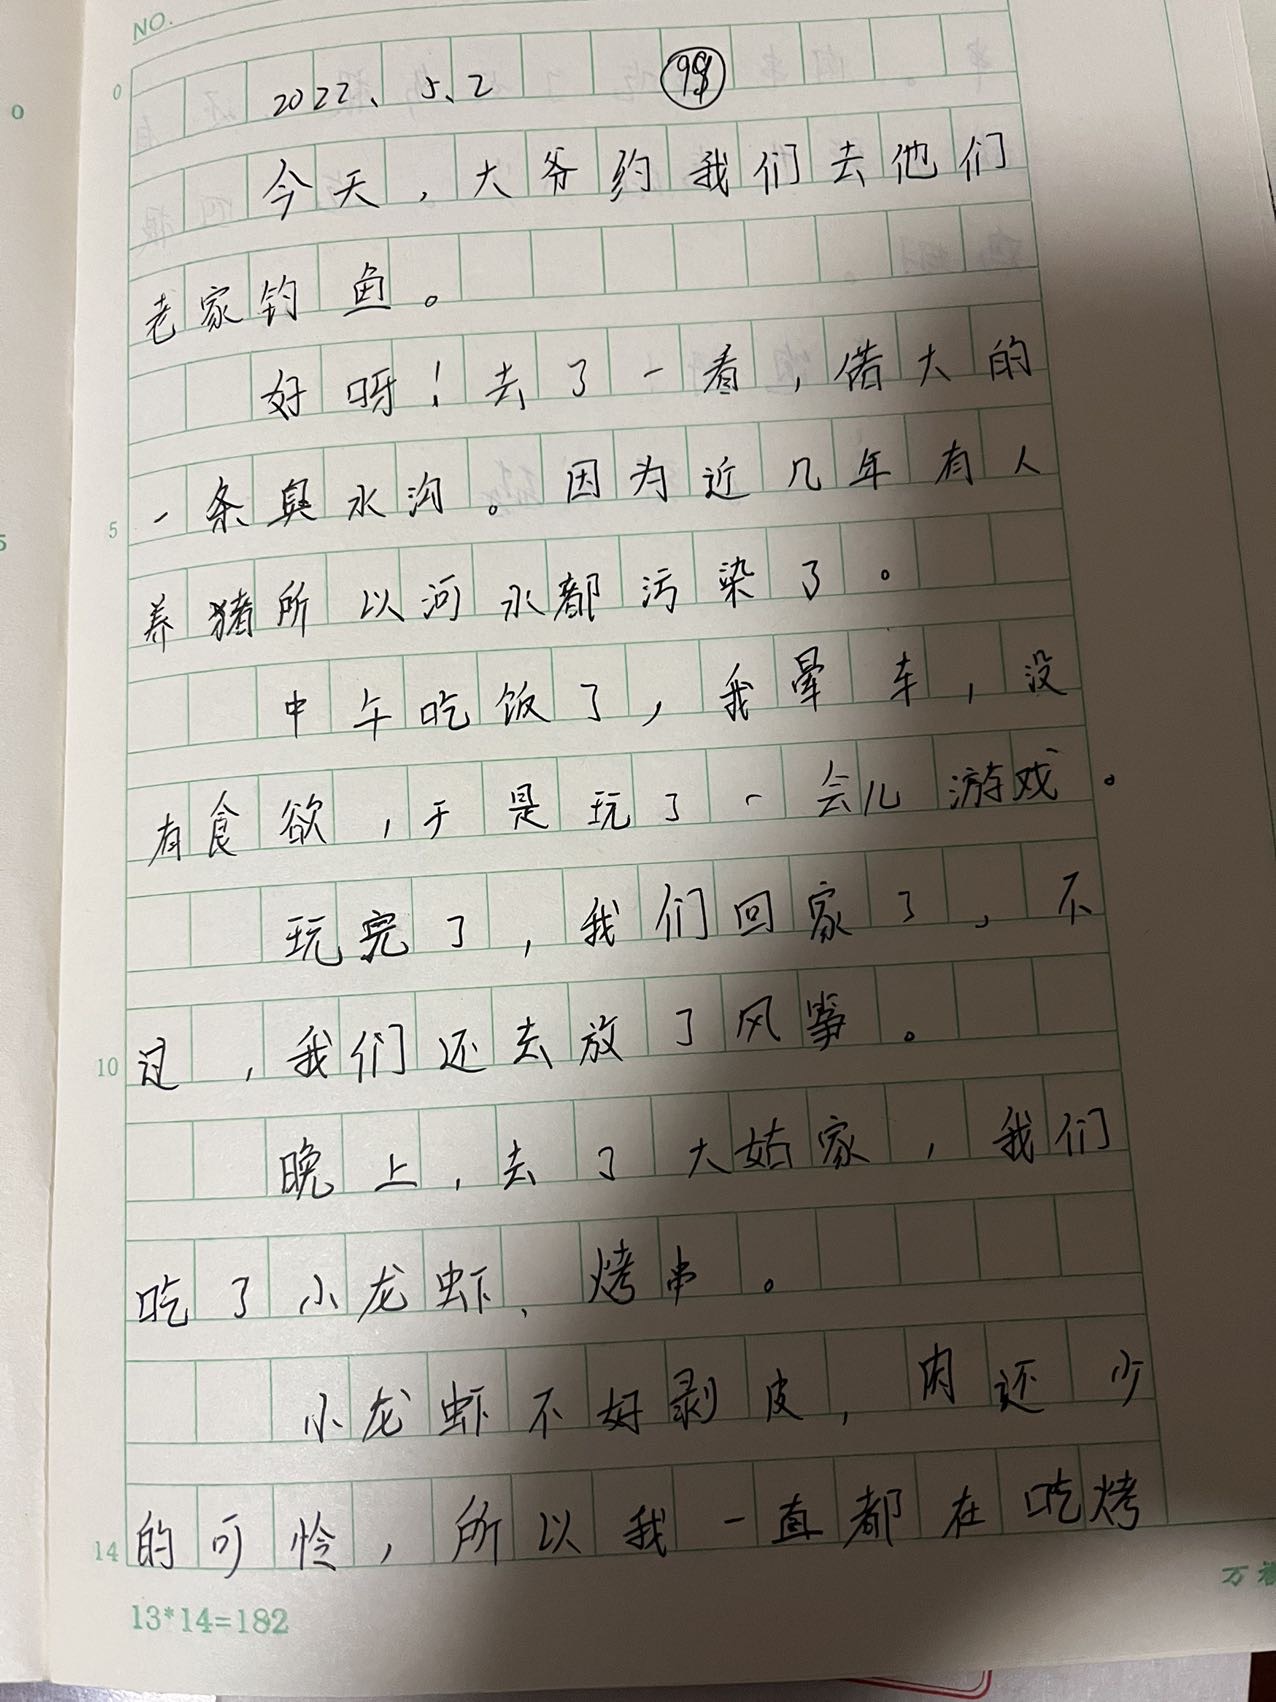 NO.
2022、5、2
今天，大爷约我们去他们
老家钓鱼。
好呀！去了一看，偌大的
一条臭水沟。因为近几年有人
养猪所以河水都污染了。
中午吃饭了，我晕车，没
有食欲，于是玩了一会儿游戏。
玩完了，我们回家了，不
过，我们还去放了风筝。
晚上，去了大姑家，我们
吃了小龙虾、烤串。
小龙虾不好剥皮，肉还少
的可怜，所以我一直都在吃烤
0
5
10
14
13*14=182